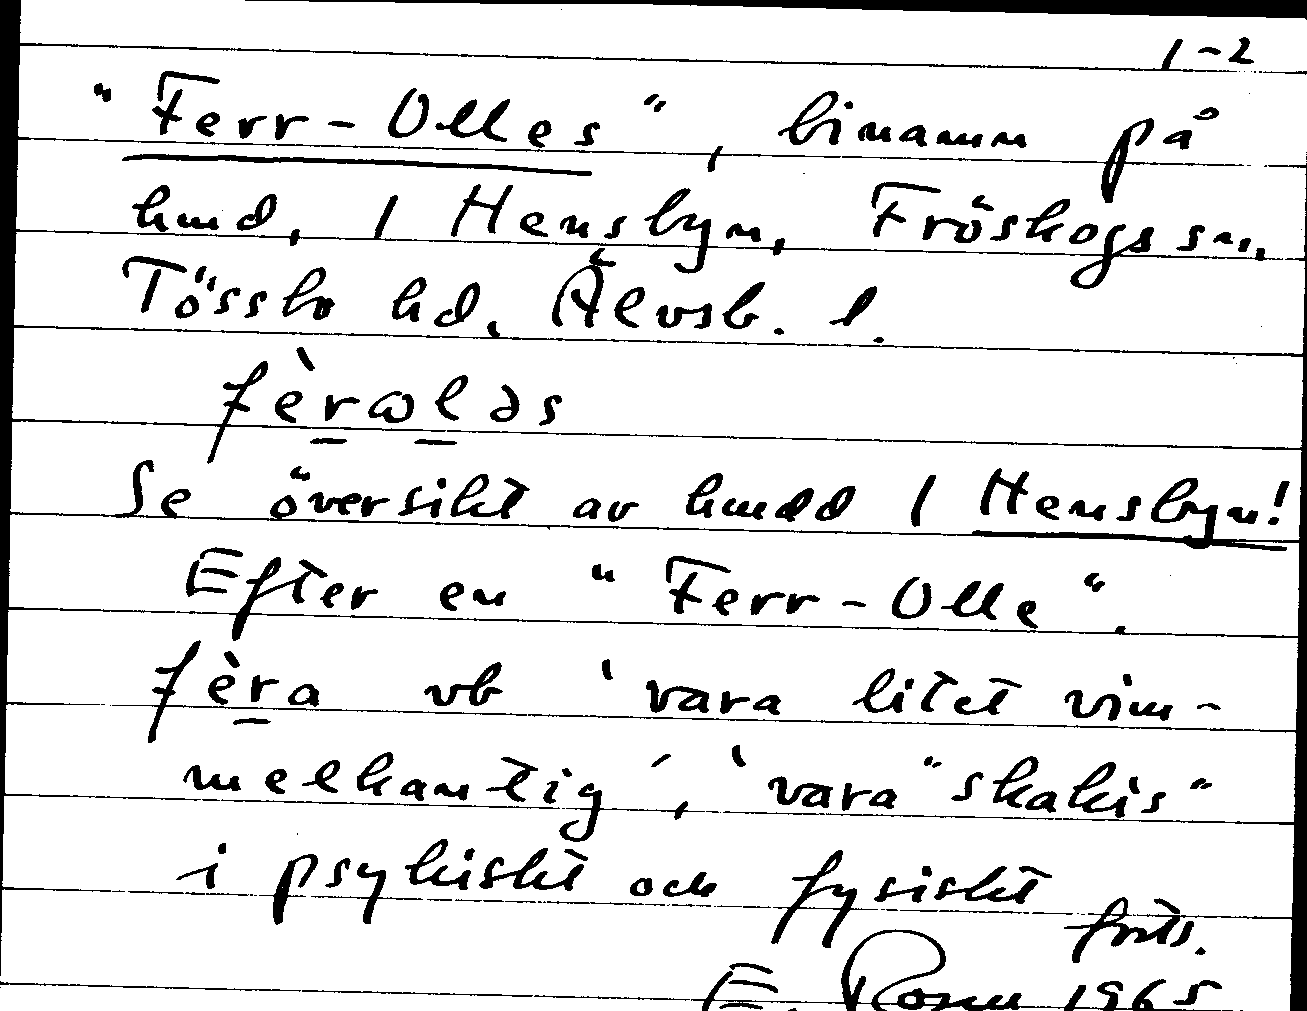 1-2
"Ferr-Olles", binamn på
hmd, 1 Hensbyn, Fröskogs sn,
Tössbo hd, Älvsb. l.
fèrωləs
Se översikt av hmdd 1 Hensbyn!
Efter en "Ferr-Olle".
fèra vb 'vara litet vim-
melkantig', 'vara "skakis"
i psykiskt och fysiskt
forts.
E. Rosen 1965